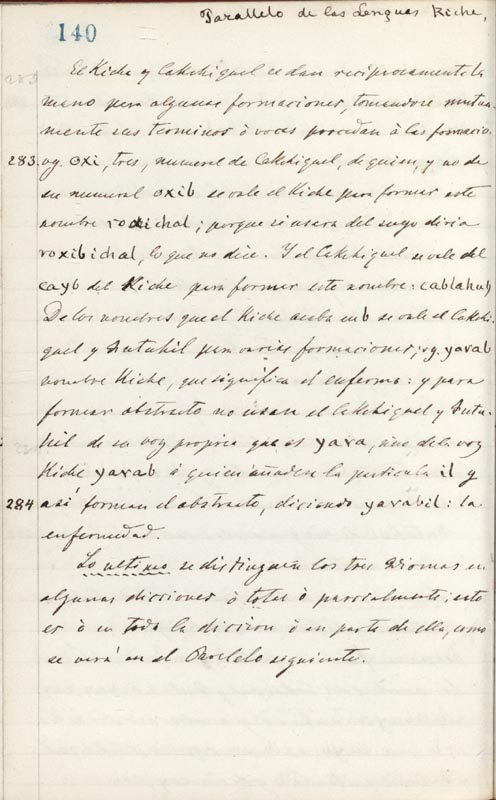 Parallelo de las Lenguas Kiche,
140
El Kiche y Cakchiquel se dan reciprocamente la
mano para algunas formaciones, tomandose mutua-
mente sus terminos ò voces para dar à las formacio.
283. vg. oxi, tres, numeral de Cakchiquel, de quien, y no de
su numeral oxib se vale el Kiche para formar este
nombre roxichal; porque si usara del suyo diria
roxibichal, lo que no dice. Y el Cakchiquel se vale del
cayb del Kiche para formar este nombre: cablahuh
De los nombres que el Kiche acaba en b se vale el Cakchi-
quel y Sutuhil para varias formaciones; vg. yavab
nombre Kiche, que significa el enfermo: y para
formar abstracto no usan el Cakchiquel y Sutu-
hil de su voz propria que es yava, sino de la voz
Kiche yavab á quien añaden la particula il y
284 así forman el abstracto, diciendo yavabil: la
enfermedad.
Lo ultimo se distinguen los tres Idiomas en
algunas dicciones ò total ò parcialmente; esto
es ò en toda la diccion ò en parte de ella, como
se verá en el Paralelo siguiente.